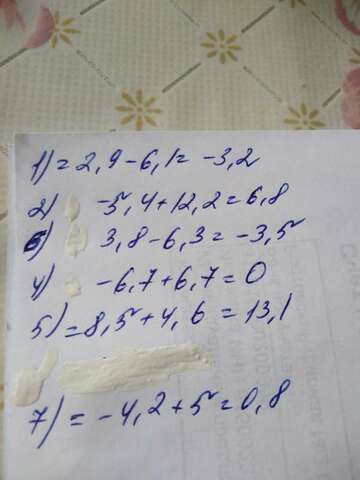 1) = 2,9 - 6,1 = -3,2
2) -5,4 + 12,2 = 6,8
3) 3,8 - 6,3 = -3,5
4) -6,7 + 6,7 = 0
5) = 8,5 + 4,6 = 13,1
7) = -4,2 + 5 = 0,8